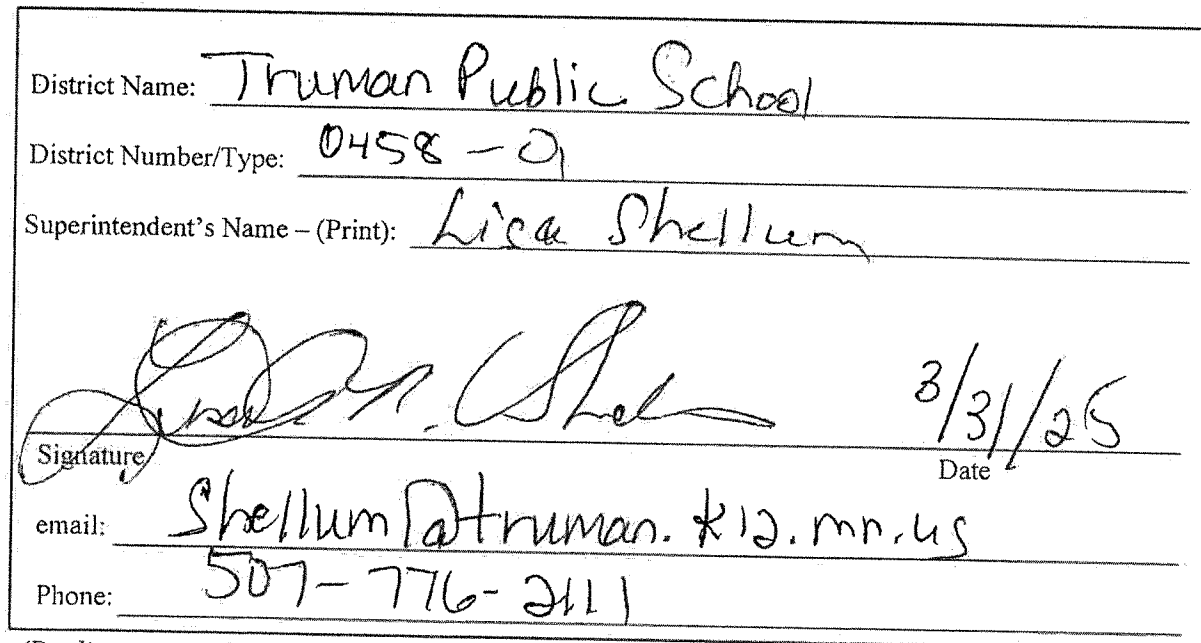 District Name: Truman Public School
District Number/Type: 0458-01
Superintendent's Name – (Print): Lisa Shellum
3/31/25
Signature Date
email: Shellum@truman.k12.mn.us
Phone: 507-776-2111